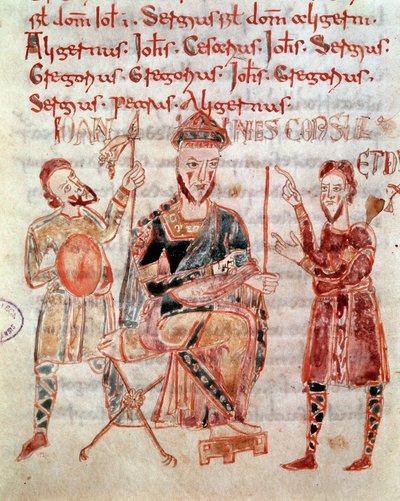 Bł dom̄ Ioħ i. Sergius Bł dom̄ Aligerni.
Aligernus. Ioħs. Cesarius. Ioħs. Sergius.
Gregorius. Gregorius. Ioħs. Gregorius.
Sergius. Petrus. Aligernus.
IOANNES CONSUL
ET DU